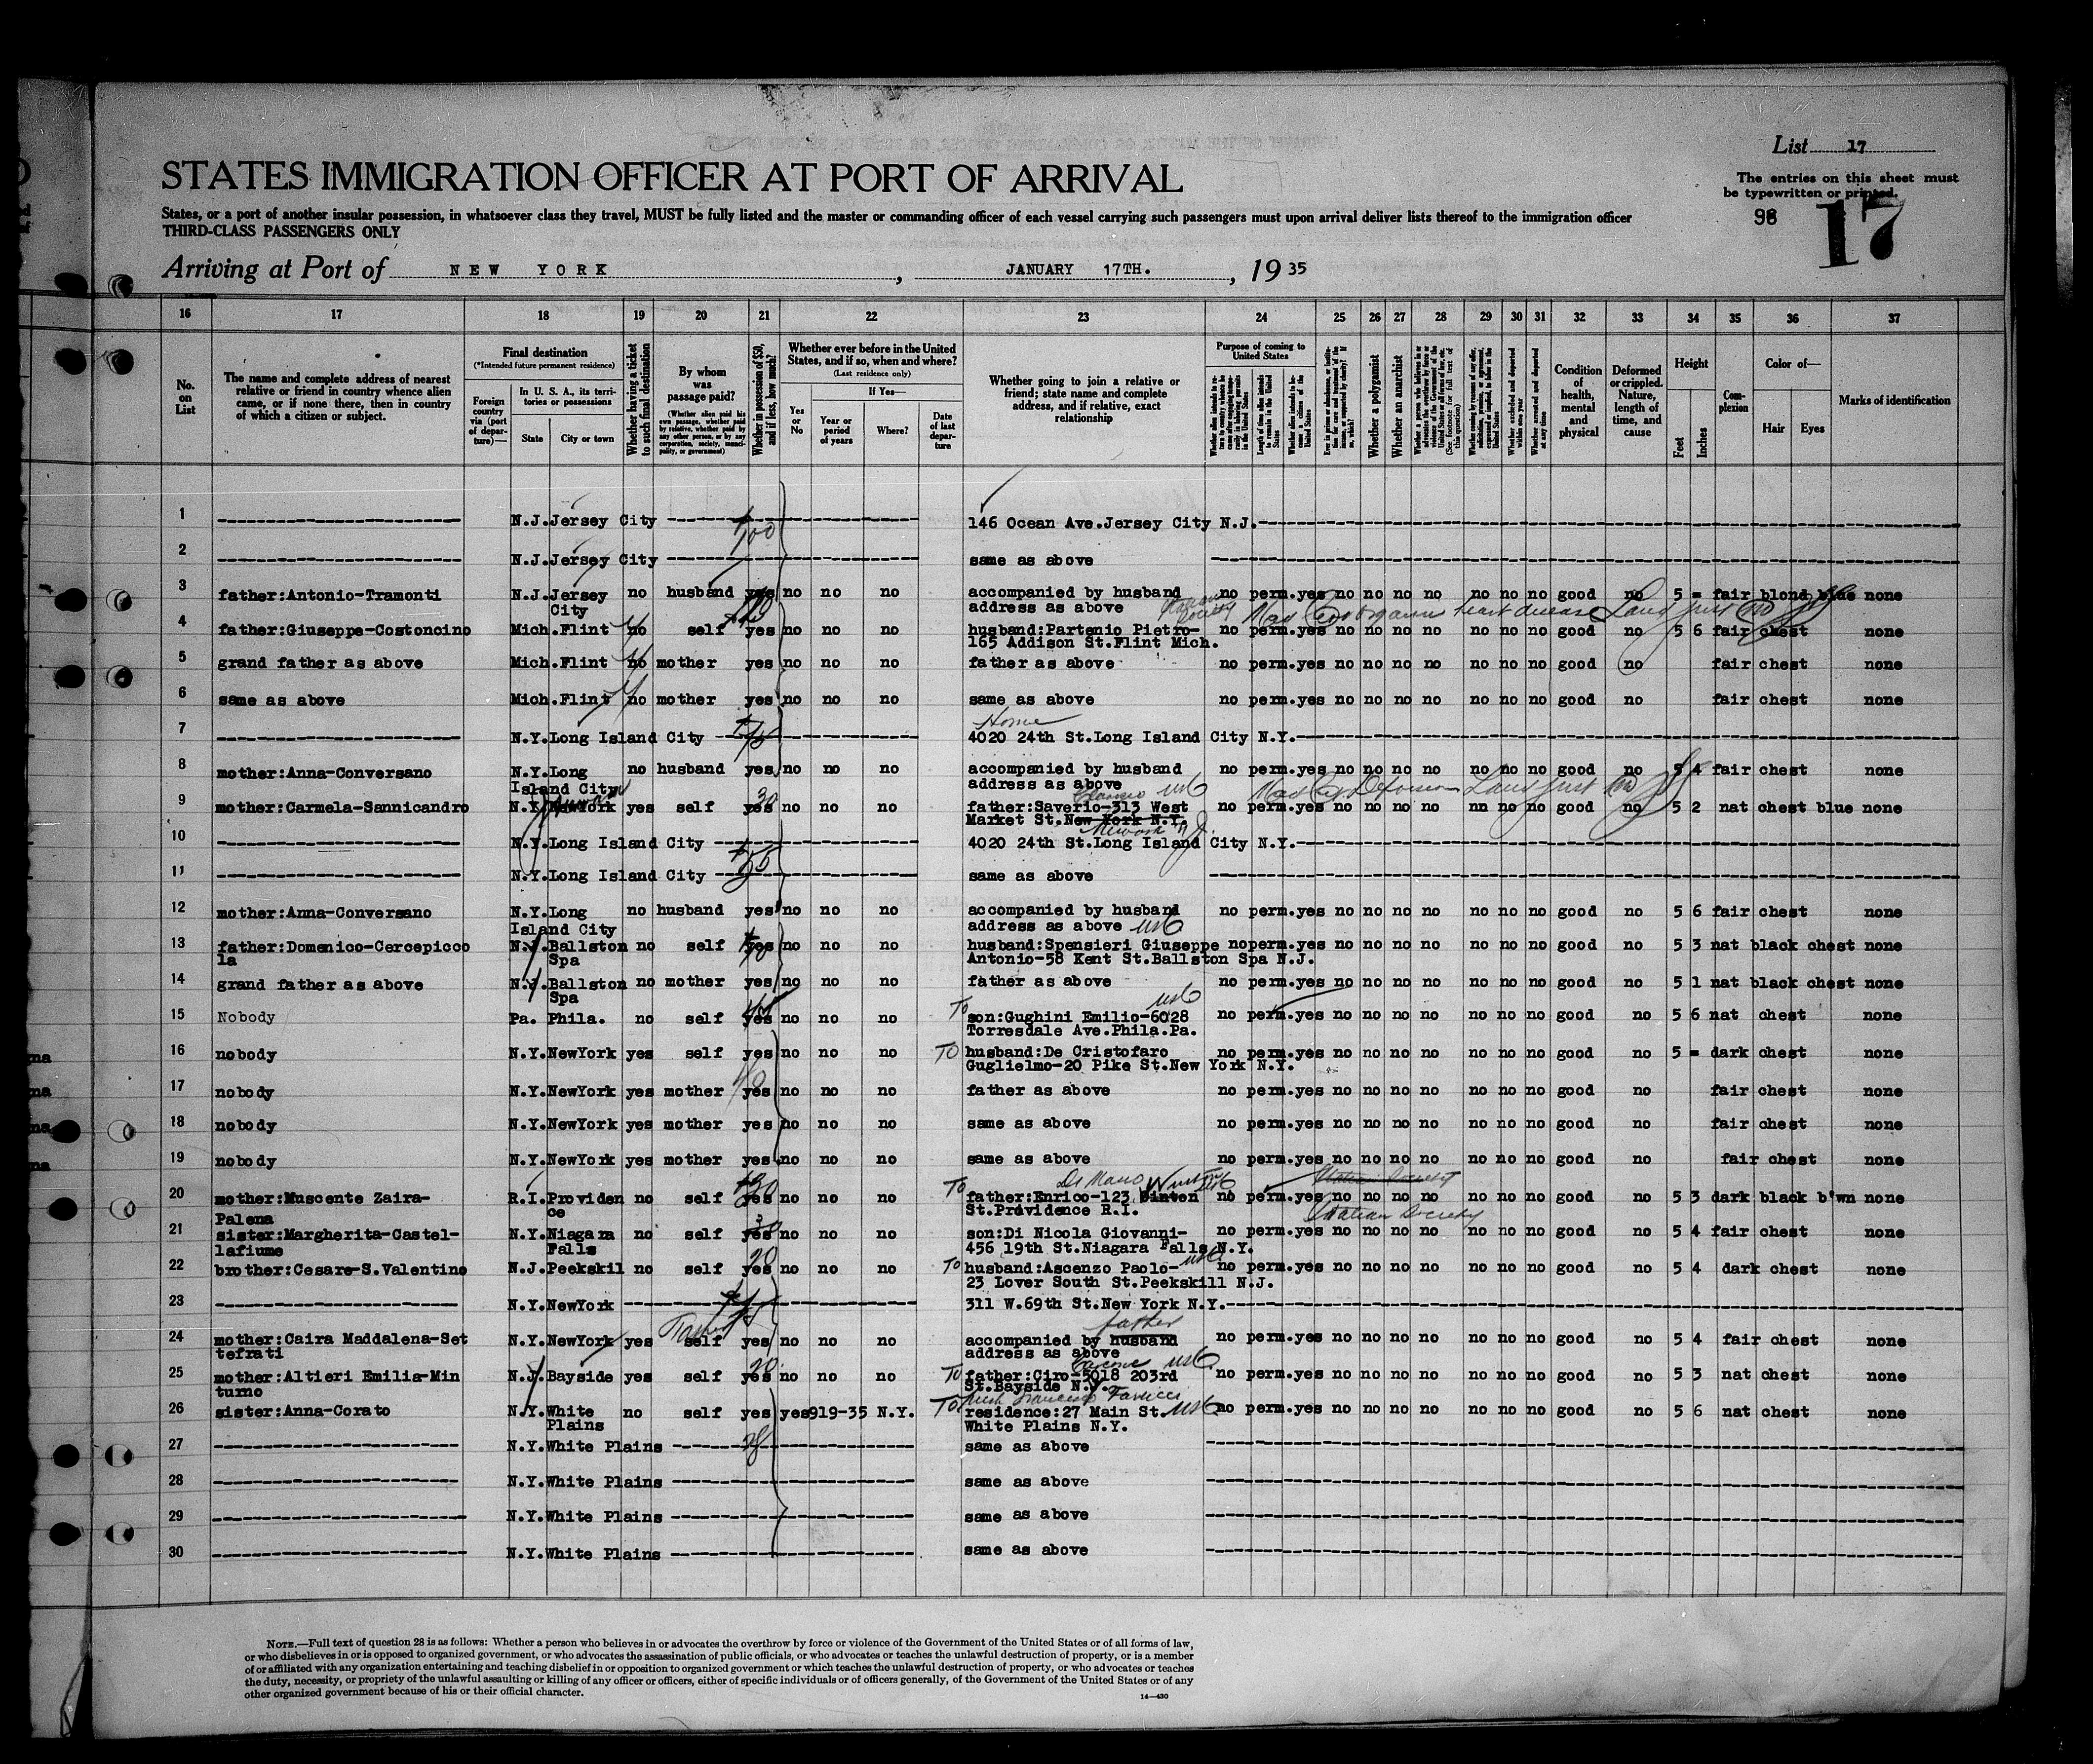 List 17
The entries on this sheet must
be typewritten or printed.
98 17
STATES IMMIGRATION OFFICER AT PORT OF ARRIVAL
States, or a port of another insular possession, in whatsoever class they travel, MUST be fully listed and the master or commanding officer of each vessel carrying such passengers must upon arrival deliver lists thereof to the immigration officer
THIRD-CLASS PASSENGERS ONLY
Arriving at Port of NEW YORK, JANUARY 17TH., 1935
16 17 18 19 20 21 22 23 24 25 26 27 28 29 30 31 32 33 34 35 36 37
No. on List
The name and complete address of nearest
relative or friend in country whence alien
came, or if none there, then in country
of which a citizen or subject.
Final destination
(*Intended future permanent residence)
Foreign country via (port of departure)—
In U. S. A., its territories or possessions
State City or town
Whether having a ticket to such final destination
By whom was passage paid?
(Whether alien paid his own passage, whether paid by relative, whether paid by any other person, or by any corporation, society, municipality, or government)
Whether in possession of $50, and if less, how much?
Whether ever before in the United States, and if so, when and where?
(Last residence only)
If Yes—
Yes or No
Year or period of years
Where?
Date of last departure
Whether going to join a relative or
friend; state name and complete
address, and if relative, exact
relationship
Purpose of coming to United States
Length of time alien intends to remain in the United States
Whether alien intends to become a citizen of the United States
Whether a polygamist
Whether an anarchist
Whether excluded and deported within one year
Whether arrested and deported at any time
Condition of health, mental and physical
Deformed or crippled. Nature, length of time, and cause
Height
Feet Inches
Complexion
Color of—
Hair Eyes
Marks of identification
1 N.J. Jersey City 100 146 Ocean Ave.Jersey City N.J.
2 N.J. Jersey City same as above
3 father:Antonio-Tramonti N.J. Jersey no husband yes no no no accompanied by husband no perm. yes no no no no no no no no good no 5 = fair blond blue none
City address as above
4 father:Giuseppe-Costoncino Mich. Flint no self yes no no no husband:Partenio Pietro- no perm. yes no no no no no no no no good no 5 6 fair chest none
165 Addison St.Flint Mich.
5 grand father as above Mich. Flint no mother yes no no no father as above no perm. yes no no no no no no no no good no fair chest none
6 same as above Mich. Flint no mother yes no no no same as above no perm. yes no no no no no no no no good no fair chest none
Home
7 N.Y. Long Island City 4020 24th St.Long Island City N.Y.
8 mother:Anna-Conversano N.Y. Long no husband yes no no no accompanied by husband no perm. yes no no no no no no no no good no 5 4 fair chest none
Island City address as above
9 mother:Carmela-Sannicandro N.Y. NewYork yes self yes 30 no no no father:Saverio-313 West no perm. yes no no no no nn no no no good no 5 2 nat chest blue none
Market St.New York N.Y.
Newark N.J.
10 N.Y. Long Island City 4020 24th St.Long Island City N.Y.
11 N.Y. Long Island City same as above
12 mother:Anna-Conversano N.Y. Long no husband yes no no no accompanied by husband no perm. yes no no no no no no no no good no 5 6 fair chest none
Island City address as above
13 father:Domenico-Cercepicco N.J. Ballston no self yes no no no husband:Spensieri Giuseppe no perm. yes no no no no no no no no good no 5 3 nat black chest none
la Spa Antonio-58 Kent St.Ballston Spa N.J.
14 grand father as above N.J. Ballston no mother yes no no no father as above no perm. yes no no no no no no no no good no 5 1 nat black chest none
Spa
15 Nobody Pa. Phila. no self yes no no no To son:Gughini Emilio-6028 no perm. yes no no no no no no no no good no 5 6 nat chest none
Torresdale Ave.Phila.Pa.
16 nobody N.Y. NewYork yes self yes no no no TO husband:De Cristofaro no perm. yes no no no no no no no no good no 5 = dark chest none
Guglielmo-20 Pike St.New York N.Y.
17 nobody N.Y. NewYork yes mother yes no no no father as above no perm. yes no no no no no no no no good no fair chest none
18 nobody N.Y. NewYork yes mother yes no no no same as above no perm. yes no no no no no no no no good no fair chest none
19 nobody N.Y. NewYork yes mother yes no no no same as above no perm. yes no no no no no no no no good no fair chest none
20 mother:Muscente Zaira- R.I. Providen no self yes no no no To father:Enrico-123 Sinten no perm. yes no no no no no no no no good no 5 3 dark black b'wn none
Palena ce St.Providence R.I. Italian Society
21 sister:Margherita-Castel- N.Y. Niagara no self yes no no no son:Di Nicola Giovanni- no perm. yes no no no no no no no no good no 5 4 fair chest none
lafiume Falls 456 19th St.Niagara Falls N.Y.
22 brother:Cesare-S.Valentino N.J. Peekskil no self yes 20 no no no To husband:Ascenzo Paolo- no perm. yes no no no no no no no no good no 5 4 dark chest none
23 Lover South St.Peekskill N.J.
23 N.Y. NewYork 311 W.69th St.New York N.Y.
father
24 mother:Caira Maddalena-Set N.Y. NewYork yes Father self yes no no no accompanied by husband no perm. yes no no no no no no no no good no 5 4 fair chest none
tefrati address as above
25 mother:Altieri Emilia-Min N.J. Bayside yes self yes 20 no no no To father:Ciro-5018 203rd no perm. yes no no no no no no no no good no 5 3 nat chest none
turno St.Bayside N.Y.
26 sister:Anna-Corato N.Y. White no self yes yes 919-35 N.Y. To residence:27 Main St. no perm. yes no no no no no no no no good no 5 6 nat chest none
Plains White Plains N.Y.
27 N.Y. White Plains same as above
28 N.Y. White Plains same as above
29 N.Y. White Plains same as above
30 N.Y. White Plains same as above
NOTE.—Full text of question 28 is as follows: Whether a person who believes in or advocates the overthrow by force or violence of the Government of the United States or of all forms of law,
or who disbelieves in or is opposed to organized government, or who advocates the assassination of public officials, or who advocates or teaches the unlawful destruction of property, or is a member
of or affiliated with any organization entertaining and teaching disbelief in or opposition to organized government or which teaches the unlawful destruction of property, or who advocates or teaches
the duty, necessity, or propriety of the unlawful assaulting or killing of any officer or officers, either of specific individuals or of officers generally, of the Government of the United States or of any
other organized government because of his or their official character.
14—430